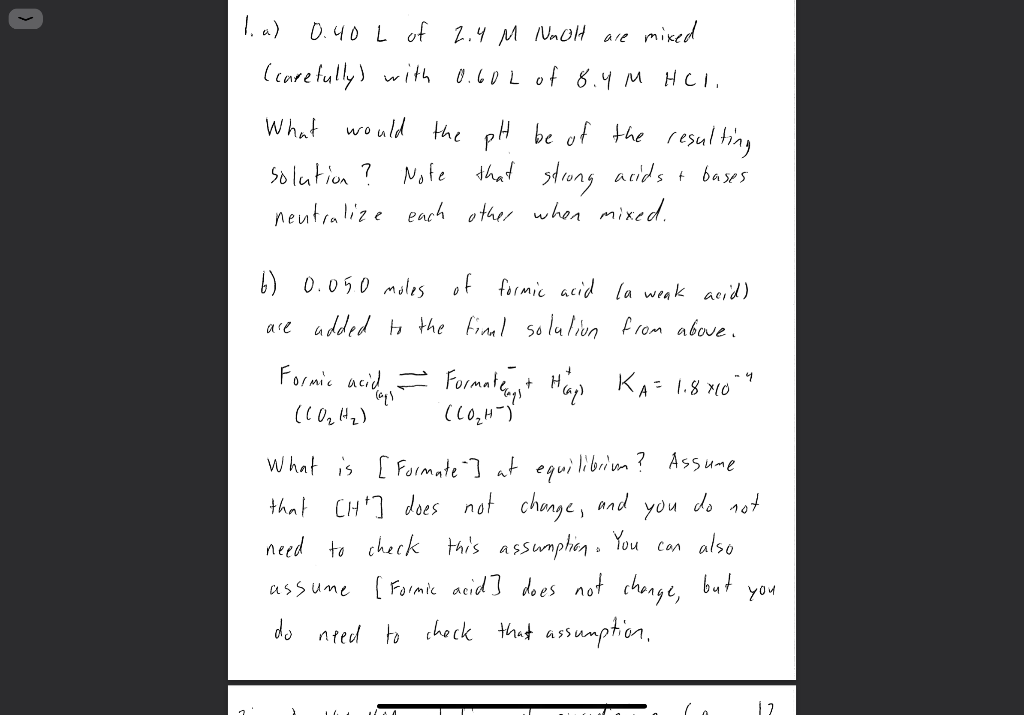 1. a) 0.40 L of 2.4 M NaOH are mixed
(carefully) with 0.60 L of 8.4 M HCl.
What would the pH be of the resulting
solution? Note that strong acids + bases
neutralize each other when mixed.
b) 0.050 moles of formic acid (a weak acid)
are added to the final solution from above.
Formic acid(aq) ⇌ Formate⁻(aq) + H⁺(aq) K_A = 1.8 x10⁻⁴
(CO₂H₂) (CO₂H⁻)
What is [Formate⁻] at equilibrium? Assume
that [H⁺] does not change, and you do not
need to check this assumption. You can also
assume [Formic acid] does not change, but you
do need to check that assumption.